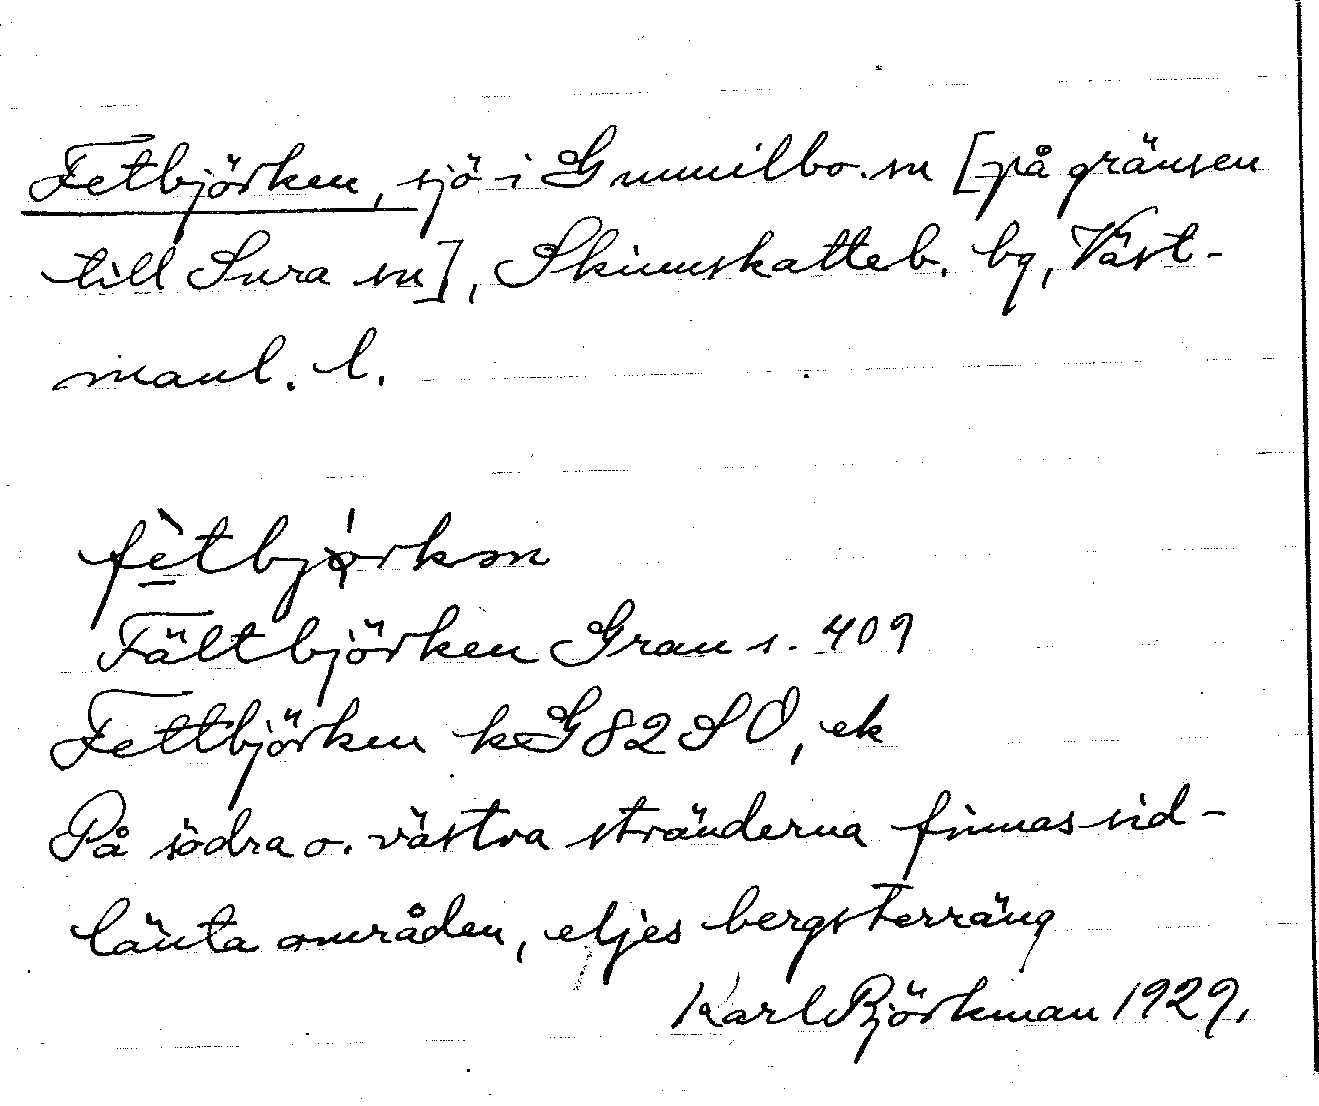 Fetbjörken, sjö i Gunnilbo sn [på gränsen
till Sura sn], Skinnskatteb. bg, Väst-
manl. l.
fètbjørkən
Fältbjörken Grau s. 409
Fettbjörken kG 82 SO, ek
På södra o. västra stränderna finnas sid-
länta områden, eljes bergsterräng
Karl Björkman 1929.